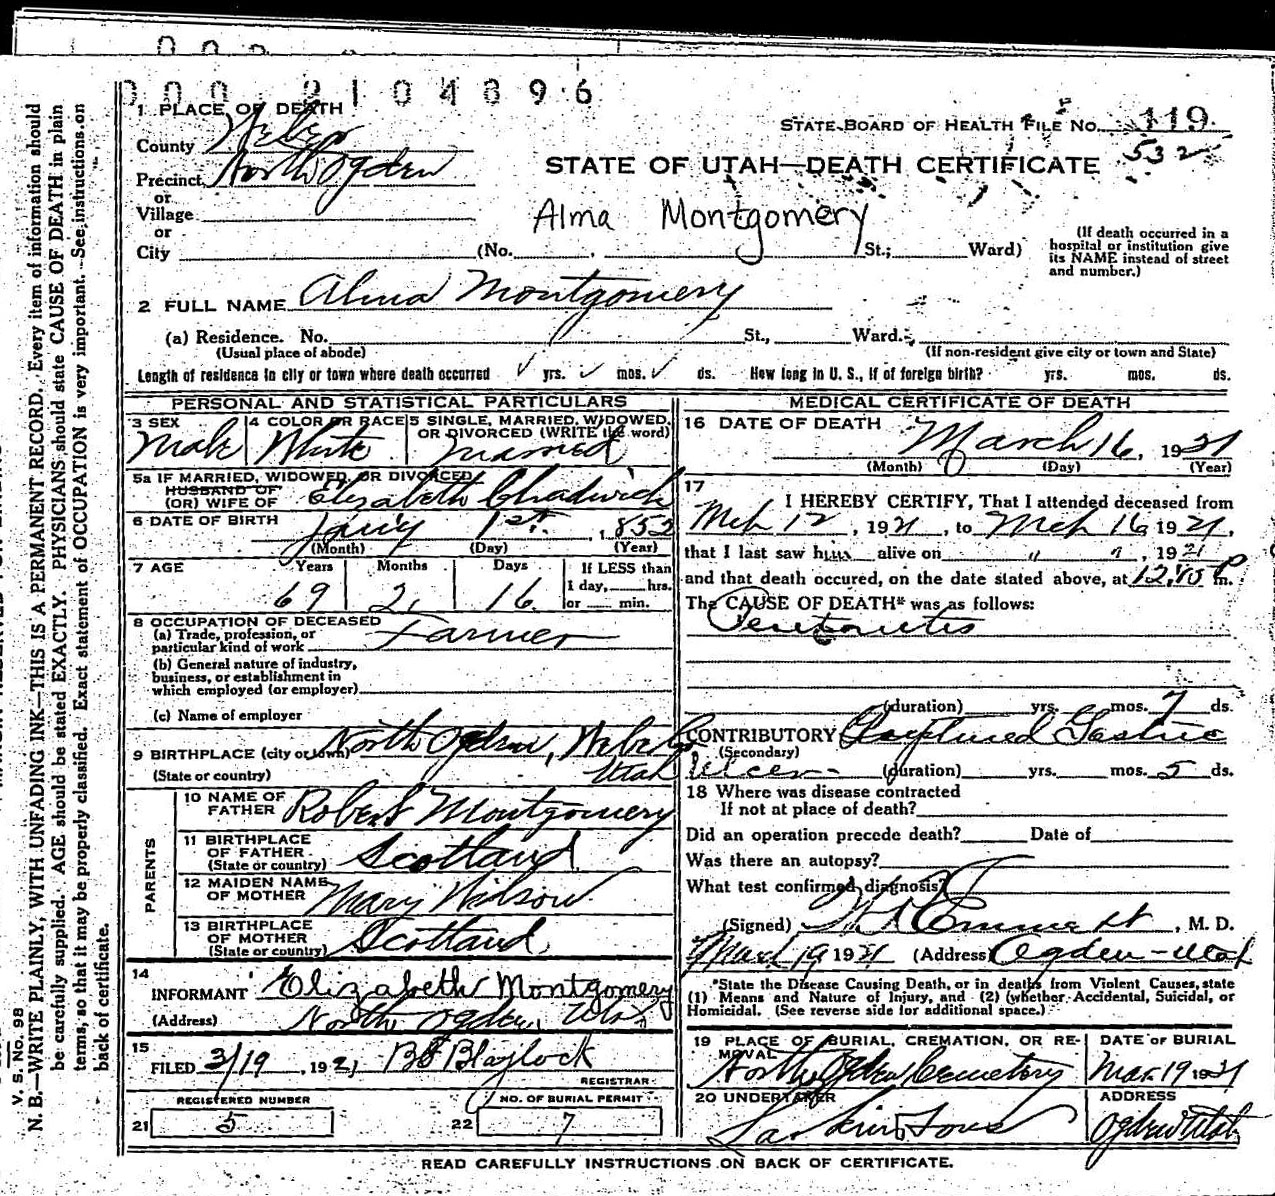 000 2104896
1 PLACE OF DEATH
STATE BOARD OF HEALTH FILE NO. 119
532
County Weber
STATE OF UTAH—DEATH CERTIFICATE
Precinct North Ogden
or
Village
Alma Montgomery
or
City (No. St.; Ward)
(If death occurred in a
hospital or institution give
its NAME instead of street
and number.)
2 FULL NAME Alma Montgomery
(a) Residence. No. St., Ward.
(Usual place of abode)
(If non-resident give city or town and State)
Length of residence in city or town where death occurred ✓ yrs. ✓ mos. ✓ ds. How long in U. S., if of foreign birth? yrs. mos. ds.
PERSONAL AND STATISTICAL PARTICULARS
3 SEX
Male
4 COLOR OR RACE
White
5 SINGLE, MARRIED, WIDOWED,
OR DIVORCED (WRITE the word)
Married
5a IF MARRIED, WIDOWED, OR DIVORCED
HUSBAND OF
(OR) WIFE OF Elizabeth Chadwick
6 DATE OF BIRTH
Jany 1st, 1852
(Month) (Day) (Year)
7 AGE Years Months Days If LESS than
1 day, hrs.
69 2 16 or min.
8 OCCUPATION OF DECEASED
(a) Trade, profession, or
particular kind of work Farmer
(b) General nature of industry,
business, or establishment in
which employed (or employer)
(c) Name of employer
9 BIRTHPLACE (city or town) North Ogden, Weber Co
(State or country) Utah
PARENTS
10 NAME OF
FATHER Robert Montgomery
11 BIRTHPLACE
OF FATHER
(State or country) Scotland
12 MAIDEN NAME
OF MOTHER Mary Wilson
13 BIRTHPLACE
OF MOTHER
(State or country) Scotland
14
INFORMANT Elizabeth Montgomery
(Address) North Ogden, Utah
15
FILED 3/19, 1921 Blaylock
REGISTRAR
REGISTERED NUMBER
21 5
NO. OF BURIAL PERMIT
22 7
MEDICAL CERTIFICATE OF DEATH
16 DATE OF DEATH
March 16, 1921
(Month) (Day) (Year)
17
I HEREBY CERTIFY, That I attended deceased from
Mch 12, 1921, to Mch 16 1921,
that I last saw him alive on " ", 1921
and that death occured, on the date stated above, at P m.
The CAUSE OF DEATH* was as follows:
Peritonitis
(duration) yrs. mos. 7 ds.
CONTRIBUTORY Ruptured Gastric
(Secondary)
Ulcer (duration) yrs. mos. 5 ds.
18 Where was disease contracted
If not at place of death?
Did an operation precede death? Date of
Was there an autopsy?
What test confirmed diagnosis?
(Signed) Emmett, M. D.
March 19 1921 (Address) Ogden-Utah
*State the Disease Causing Death, or in deaths from Violent Causes, state
(1) Means and Nature of Injury, and (2) (whether Accidental, Suicidal, or
Homicidal. (See reverse side for additional space.)
19 PLACE OF BURIAL, CREMATION, OR RE-
MOVAL
North Ogden Cemetery
DATE OF BURIAL
Mar. 19 1921
20 UNDERTAKER
Larkin & Sons
ADDRESS
Ogden Utah
READ CAREFULLY INSTRUCTIONS ON BACK OF CERTIFICATE.
V. S. No. 98
N. B.—WRITE PLAINLY, WITH UNFADING INK—THIS IS A PERMANENT RECORD. Every item of information should
be carefully supplied. AGE should be stated EXACTLY. PHYSICIANS should state CAUSE OF DEATH in plain
terms, so that it may be properly classified. Exact statement of OCCUPATION is very important. See instructions on
back of certificate.